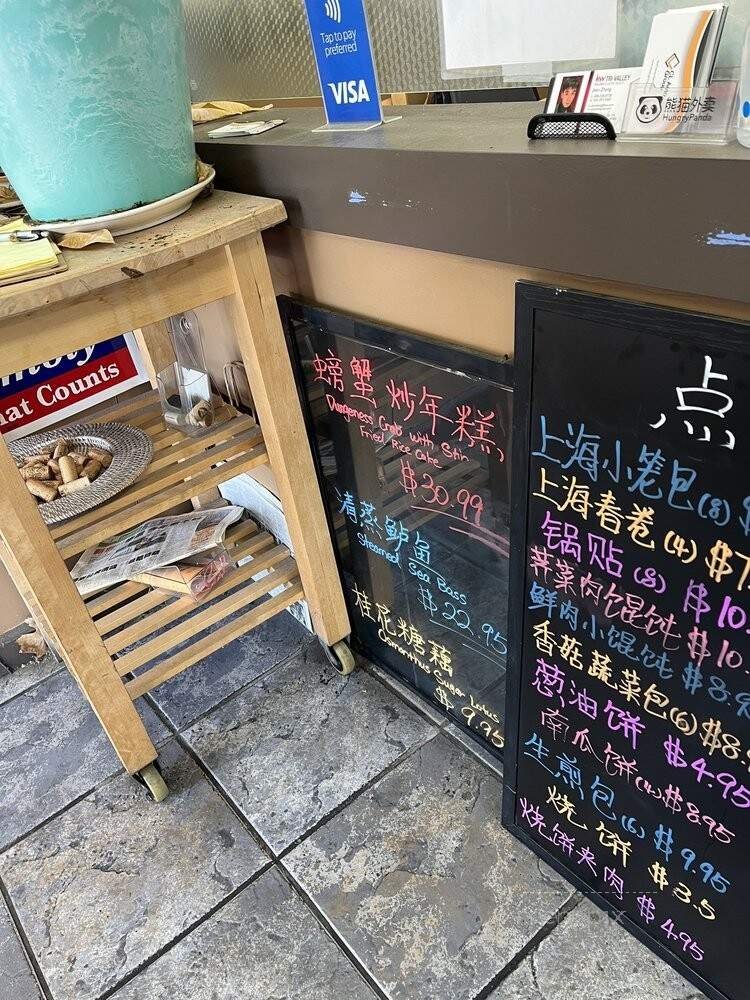 Tap to pay
preferred
VISA
KW TRI-VALLEY
熊猫外卖
HungryPanda
hat Counts
螃蟹炒年糕
Dungeness Crab with Stir
Fried Rice Cake
$30.99
清蒸鲈鱼
Steamed Sea Bass
$22.95
桂花糖藕
Osmanthus Sugar Lotus
$9.95
点
上海小笼包(8) $
上海春卷(4) $7
锅贴(8) $10.
荠菜肉馄饨 $10.
鲜肉小馄饨 $8.9
香菇蔬菜包(6) $8.
葱油饼 $4.95
南瓜饼(4) $8.95
生煎包(6) $9.95
烧饼 $3.5
烧饼夹肉 $4.95